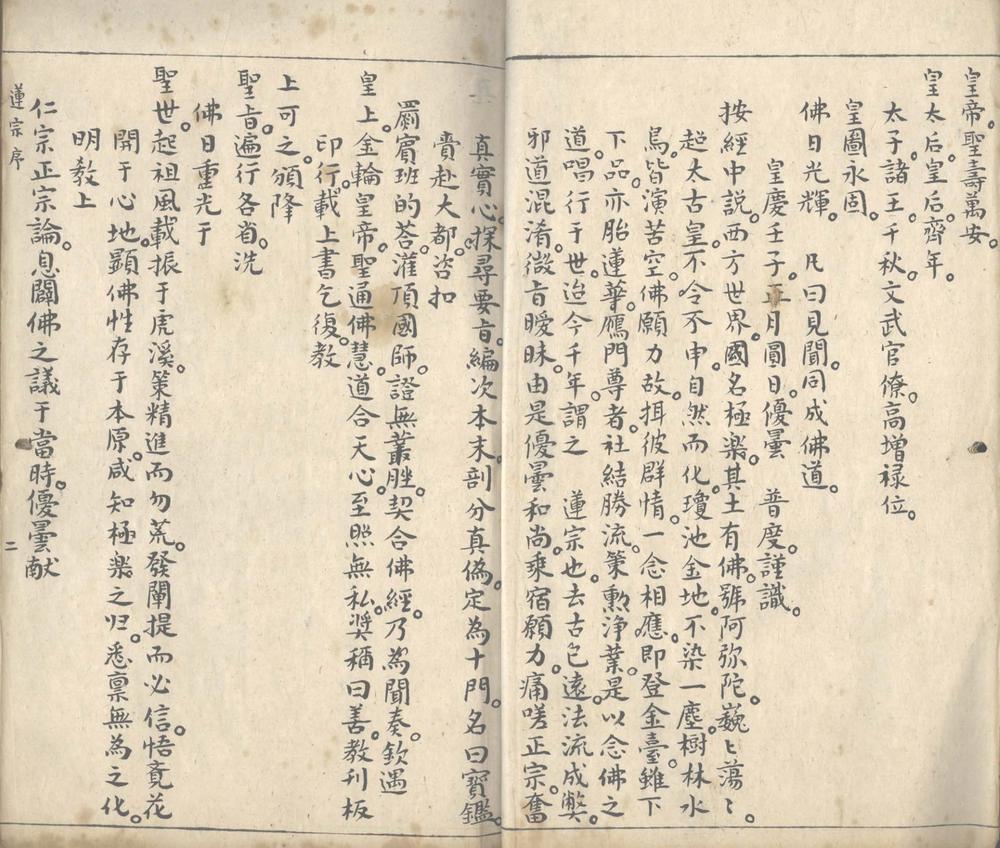 皇帝。聖壽萬安。
皇太后。皇后。齊年。
太子。諸王。千秋。文武官僚。高增禄位。
皇圖永固。
佛日光輝。 凡曰見聞。同成佛道。
皇慶壬子。正月圓日。優曇 普度。謹識。
按經中説。西方世界。國名極楽。其土有佛。號阿弥陀。巍〻蕩〻。
超太古皇。不令不申。自然而化。瓊池金地。不染一塵。樹林水
鳥。皆演苦空。佛願力故。揖彼群情。一念相應。即登金臺。雖下
下品。亦胎蓮華。鴈門尊者。社結勝流。策勲浄業。是以念佛之
道。唱行于世。迨今千年。謂之 蓮宗也。去古已遠。法流成弊。
邪道混淆。微旨曖昧。由是優曇和尚。乗宿願力。痛嗟正宗。奮
真實心。探尋要旨。編次本末。剖分真偽。定為十門。名曰寳鑑。
賫赴大都。咨扣
罽賓班的荅。灌頂國師。證無叢脞。契合佛經。乃為聞奏。欽遇
皇上。金輪皇帝。聖通佛慧。道合天心。至照無私。奨稱曰善。教刊板
印行。載上書乞復教
上可之。頒降
聖旨。遍行各省。洗
佛日重光于
聖世。起祖風載振于虎溪。策精進而勿荒。發闡提而必信。悟竟花
開于心地。顕佛性存于本原。咸知極楽之归。悉稟無為之化。
明教上
仁宗正宗論。息闢佛之議于當時。優曇献
蓮宗序
二